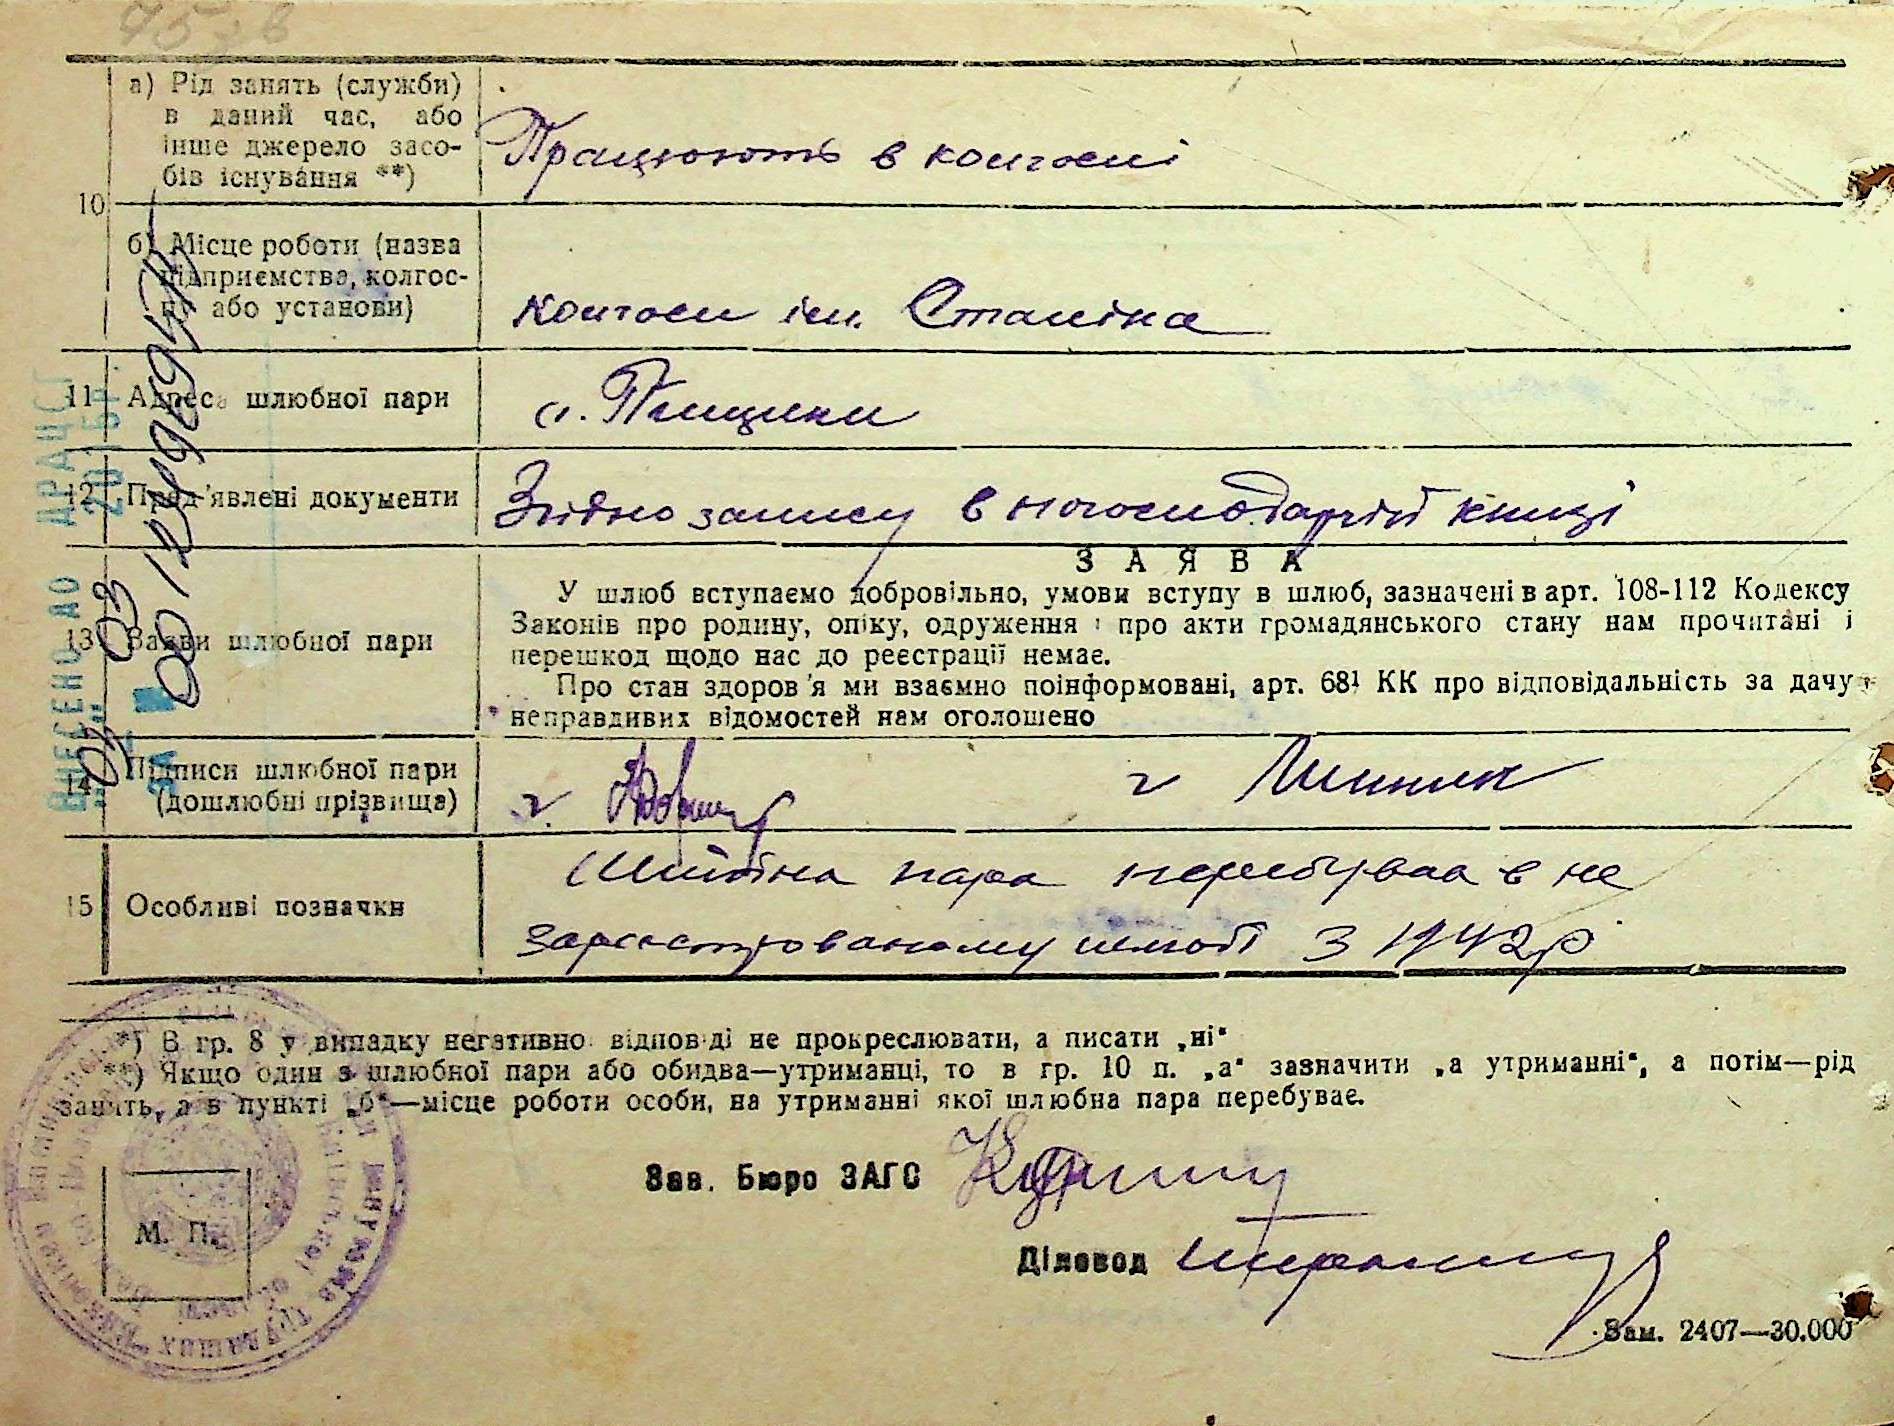 10
а) Рід занять (служби)
в даний час, або
інше джерело засо-
бів існування **)
Працюють в колгоспі
б) Місце роботи (назва
підприємства, колгос-
пу або установи)
колгосп ім. Сталіна
11 Адреса шлюбної пари
с. Пищики
12 Пред'явлені документи
Згідно запису в погосподарчій книзі
ЗАЯВА
13 Заяви шлюбної пари
У шлюб вступаємо добровільно, умови вступу в шлюб, зазначені в арт. 108-112 Кодексу
Законів про родину, опіку, одруження і про акти громадянського стану нам прочитані і
перешкод щодо нас до реєстрації немає.
Про стан здоров'я ми взаємно поінформовані, арт. 68¹ КК про відповідальність за дачу
неправдивих відомостей нам оголошено
14 Підписи шлюбної пари
(дошлюбні прізвища)
15 Особливі позначки
Шлюбна пара перебуваа в не
зареєстрованому шлюбі з 1942 р
*) В гр. 8 у випадку негативної відповіді не прокреслювати, а писати „ні“
**) Якщо один з шлюбної пари або обидва—утриманці, то в гр. 10 п. „а“ зазначити „а утриманні“, а потім—рід
занять, а в пункті „б“—місце роботи особи, на утриманні якої шлюбна пара перебуває.
Зав. Бюро ЗАГС
М. П.
Діловод
Зам. 2407—30.000
ВНЕСЕНО ДО ДРАЦСГ
03 2015р.
ЗА №